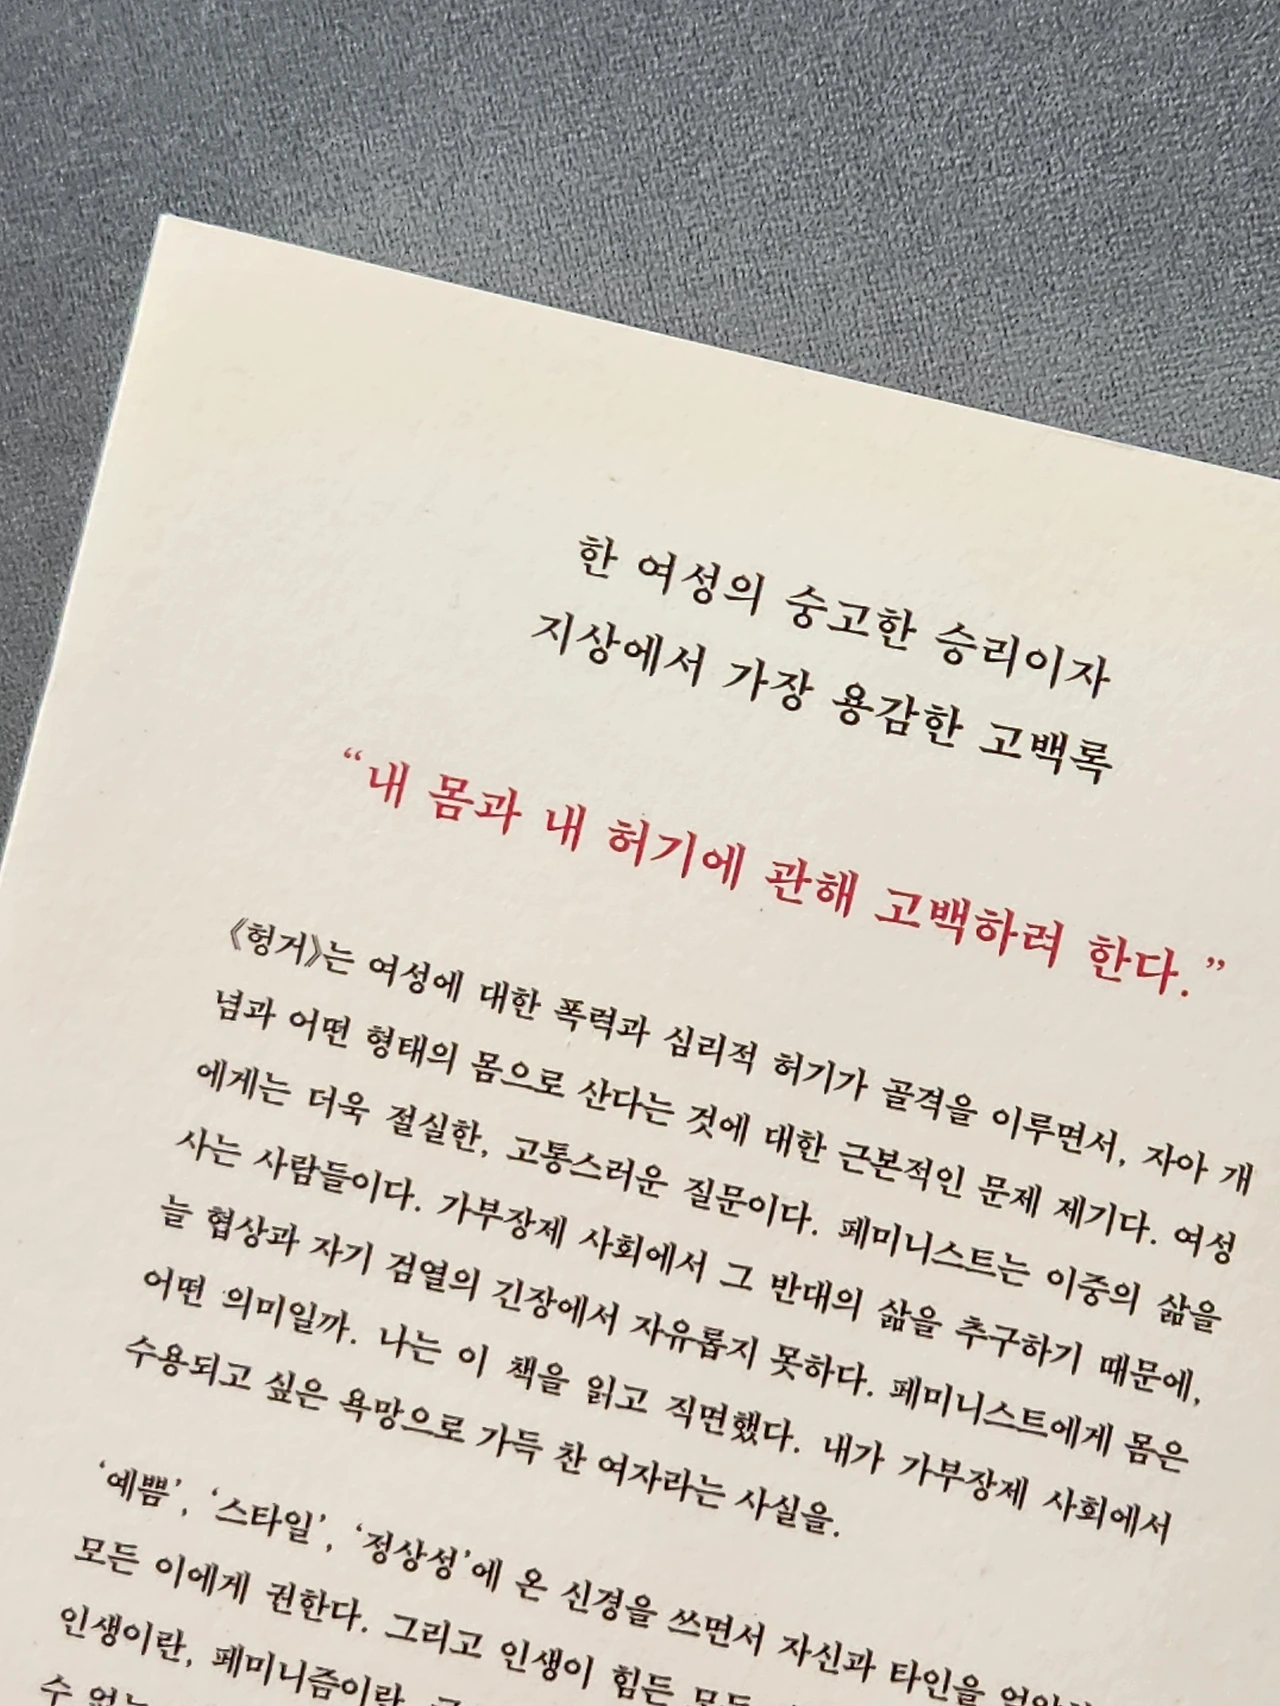 한 여성의 숭고한 승리이자
지상에서 가장 용감한 고백록
“내 몸과 내 허기에 관해 고백하려 한다.”
《헝거》는 여성에 대한 폭력과 심리적 허기가 골격을 이루면서, 자아 개
념과 어떤 형태의 몸으로 산다는 것에 대한 근본적인 문제 제기다. 여성
에게는 더욱 절실한, 고통스러운 질문이다. 페미니스트는 이중의 삶을
사는 사람들이다. 가부장제 사회에서 그 반대의 삶을 추구하기 때문에,
늘 협상과 자기 검열의 긴장에서 자유롭지 못하다. 페미니스트에게 몸은
어떤 의미일까. 나는 이 책을 읽고 직면했다. 내가 가부장제 사회에서
수용되고 싶은 욕망으로 가득 찬 여자라는 사실을.
‘예쁨’, ‘스타일’, ‘정상성’에 온 신경을 쓰면서 자신과 타인을
모든 이에게 권한다. 그리고 인생이 힘든 모든
인생이란, 페미니즘이란
수 없는